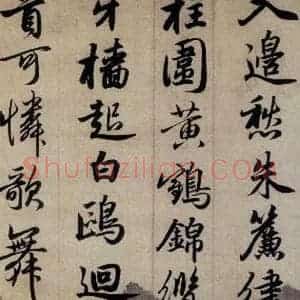 入邊愁朱簾
柱圍黃鶴錦
牙檣起白鷗迴
首可憐歌舞
Shufazilian.com